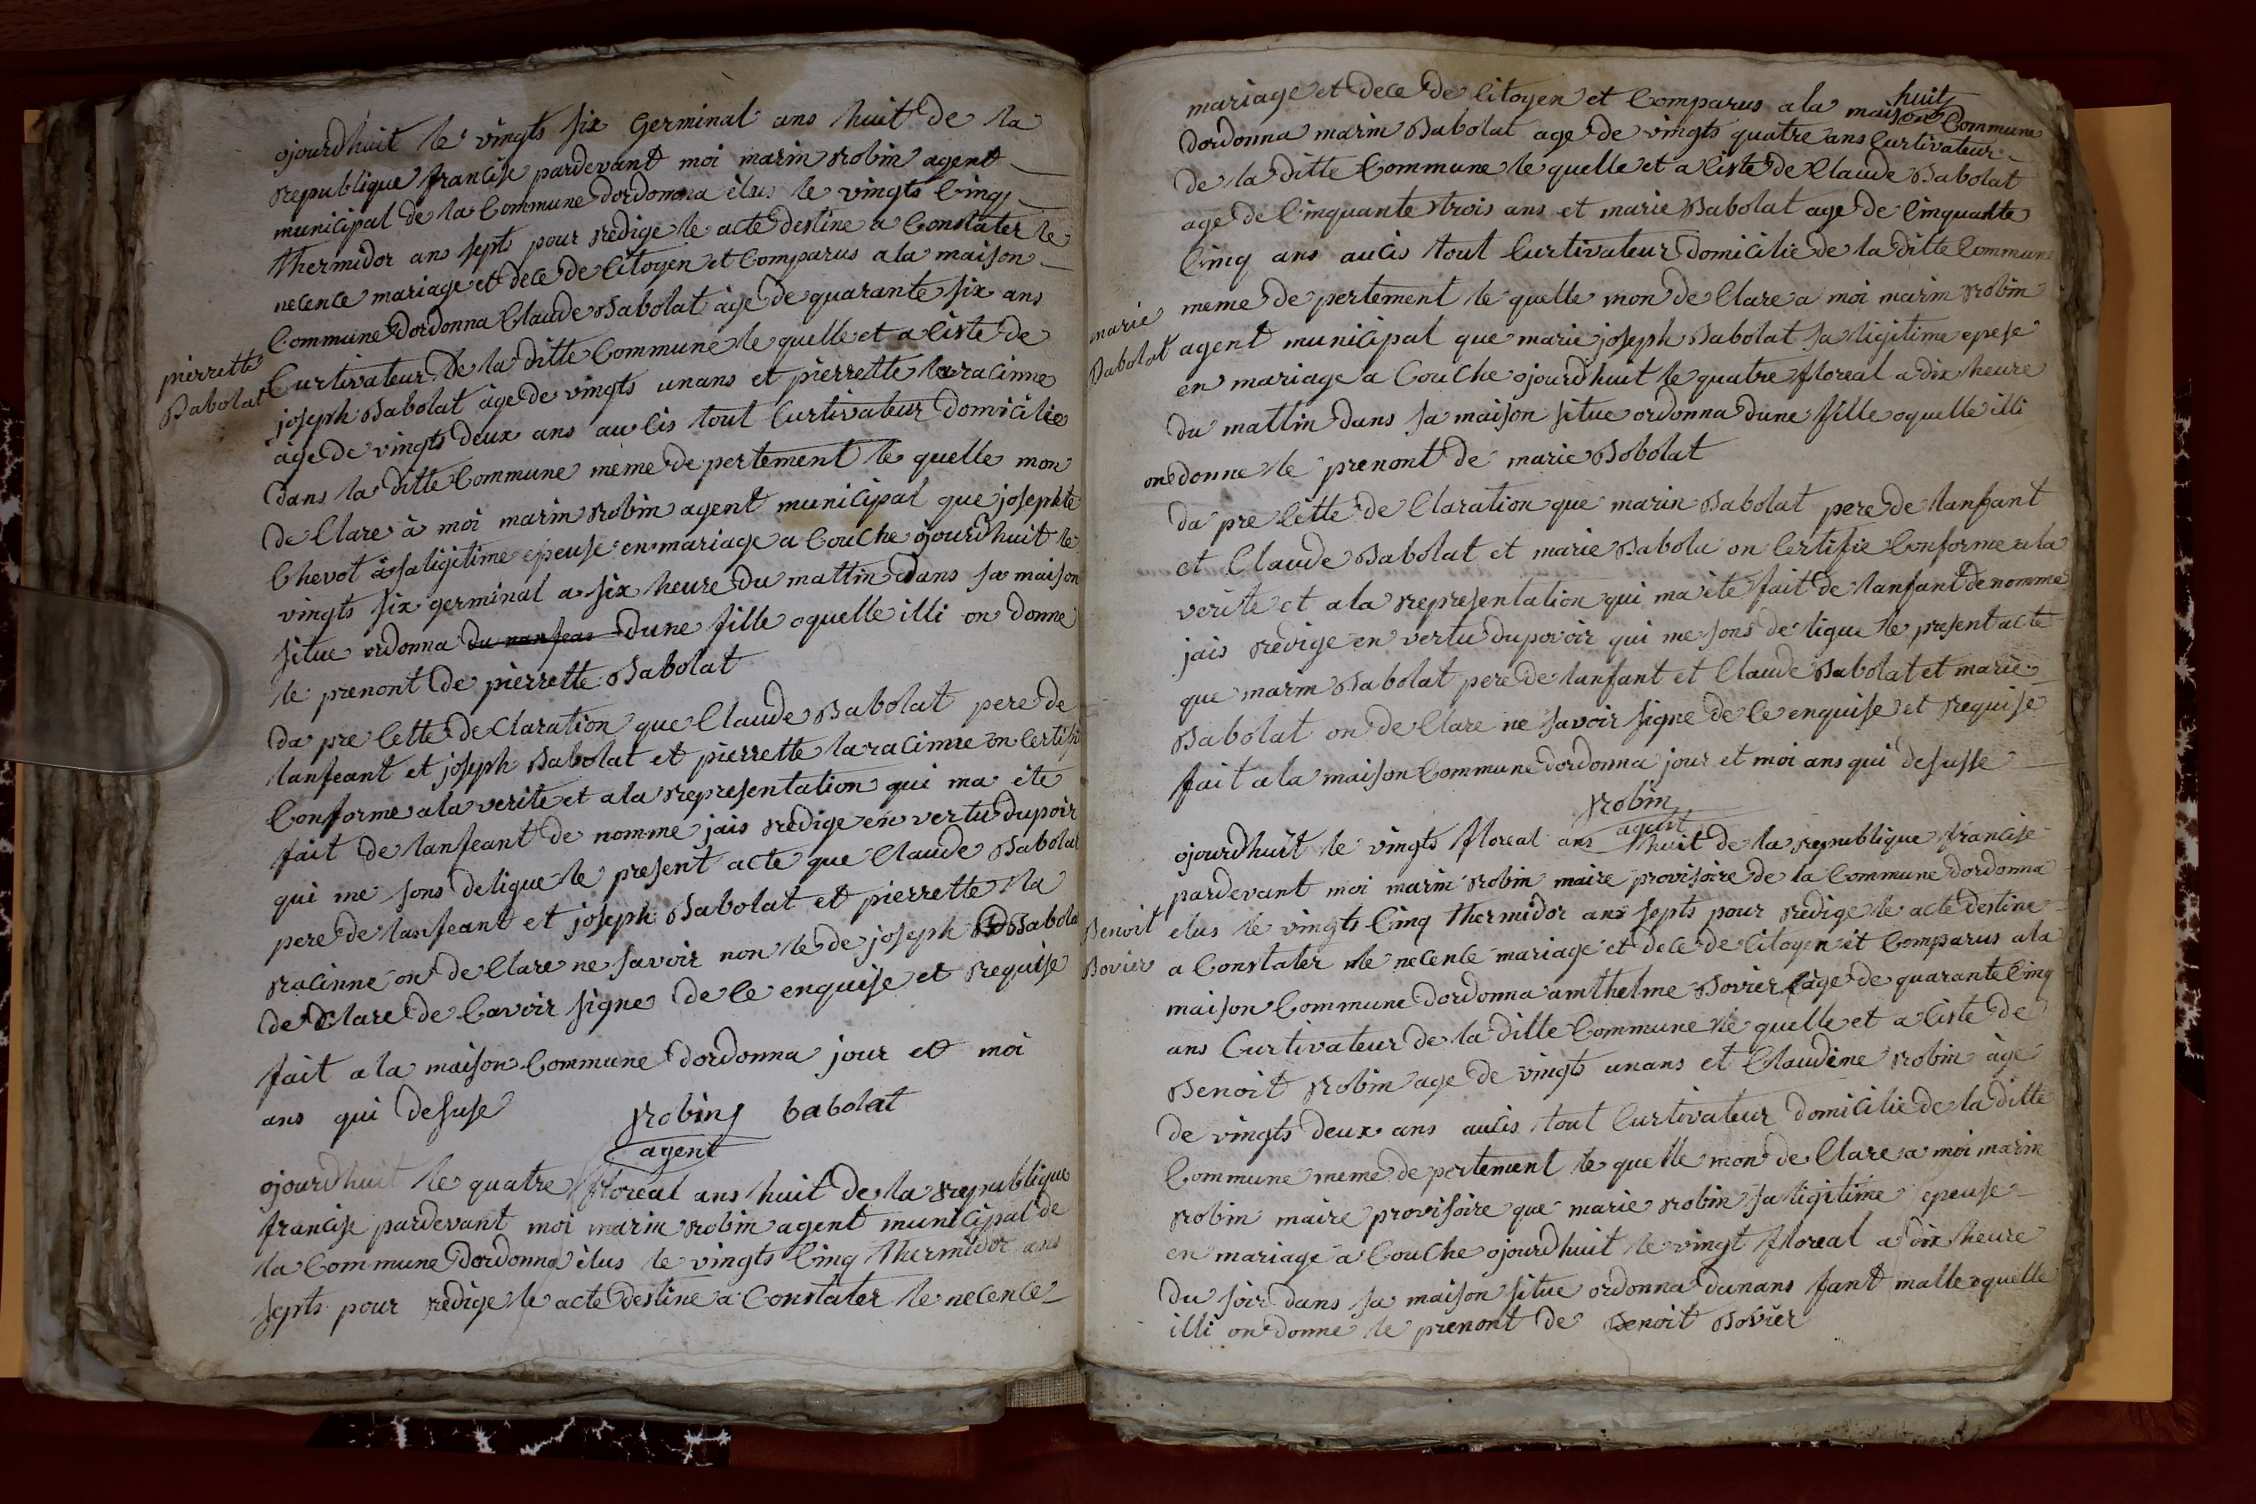 ojourdhuit le vingts six Germinal ans huit de la
republique francise pardevant moi marin robin agent
municipal de la Commune dordonna èlus le vingts Cinq
thermidor ans sept pour redige le acte destine a Constater le
necence mariage et dece de Citoyen et Comparus a la maison
Commune dordonna Claude Babolat àge de quarante six ans
pierrette
Babolat
Curtivateur de la ditte Commune le quelle et a Ciste de
joseph Babolat àge de vingts unans et pierrette laracinne
age de vingts deux ans au Cis tout Curtivateur Domicilie
dans la ditte Commune mème de pertement le quelle mon
de Clare à moi marin robin agent municipal que josephte
Chevot sa ligitime epeuse en mariage a Couche ojourdhuit le
vingts six germinal a six heure du mattin dans sa maison
situe ordonna du dune fille oquelle illi on donne
le prenont de pierrette Babolat
da pre Cette de Claration que Claude Babolat pere de
lanfeant et joseph Babolat et pierrette laracinne on Certifi
Conforme a la verite et a la representation qui ma ète
fait de lanfeant de nomme jais redige en vertu dupoir
qui me sons deligue le present acte que Claude Babolat
pere de lanfeant et joseph Babolat et pierrette la
racinne on de Clare ne savoir non le de joseph Babola
de Clare de Cavoir signe de Ce enquise et requise
fait a la maison Commune dordonna jour et moi
ans qui desuse
robin babolat
agent
ojourdhuit le quatre floreal ans huit de la republique
francise pardevant moi marin robin agent municipal de
la Commune dordonna èlus le vingts Cinq thermidor ans
septs pour redige le acte destine a Constater le necence
mariage et dece de Citoyen et Comparus a la maison Commune
huit
dordonna marin Babolat age de vingts quatre ans Curtivateur
de la ditte Commune le quelle et a Ciste de Claude Babolat
age de Cinquante trois ans et marie Babolat age de Cinquante
Cinq ans au Cis tout Curtivateur domicilie de la ditte Commune
marie
Babolat
meme de pertement le quelle mon de Clare a moi marin robin
agent municipal que marie joseph Babolat sa ligitime epese
en mariage a Couche ojourdhuit le quatre floreal a dix heure
du mattin dans sa maison situe ordonna dune fille oquelle illi
one donne le prenont de marie Bobolat
da pre Cette de Claration que marin Babolat pere de lanfant
et Claude Babolat et marie Babola on Certifie Conforme a la
verite et a la representation qui ma ète fait de lanfant de nomme
jais redige en vertu dupovoir qui me sons de ligue le present acte
que marin Babolat pere de lanfant et Claude Babolat et marie
Babolat on de Clare ne savoir signe de Ce enquise et requise
fait a la maison Commune dordonna jour et moi ans qui desusse
robin
agent
ojourdhuit le vingts floreal ans huit de la republique francise
pardevant moi marin robin maire provisoire de la Commune dordonna
Benoit
Bovier
elus le vingts Cinq thermidor ans septs pour redige le acte destine
a Constater le necence mariage et dece de Citoyen et Comparus a la
maison Commune dordonna amthelme Bovier àge de quarante Cinq
ans Curtivateur de la ditte Commune le quelle et a Ciste de
Benoit Robin age de vingts unans et Claudine robin àge
de vingts deux ans au Cis tout Curtivateur domicilie de la ditte
Commune meme de pertement le quelle mon de Clare a moi marin
robin maire provisoire que marie robin sa ligitime epeuse
en mariage a Couche ojourdhuit le vingt floreal a dix heure
du soir dans sa maison situe ordonna dunans fant malle oquelle
illi on donne le prenont de Benoit Bovier